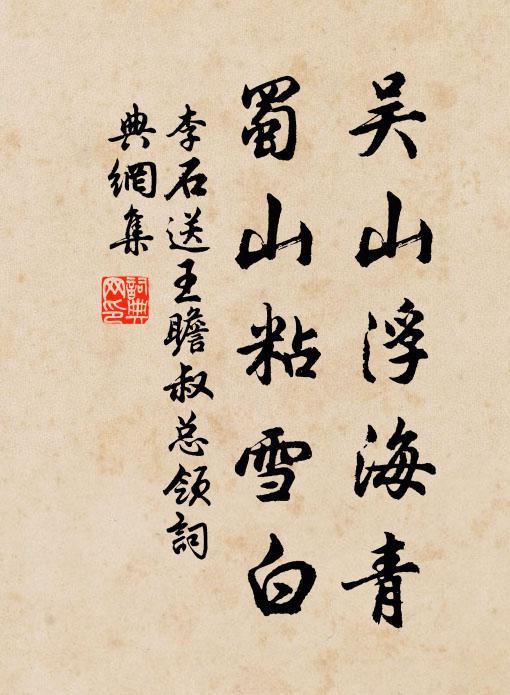 吴山浮海青
蜀山粘雪白
李石送王瞻叔总领詞
典網集
詞典
网印